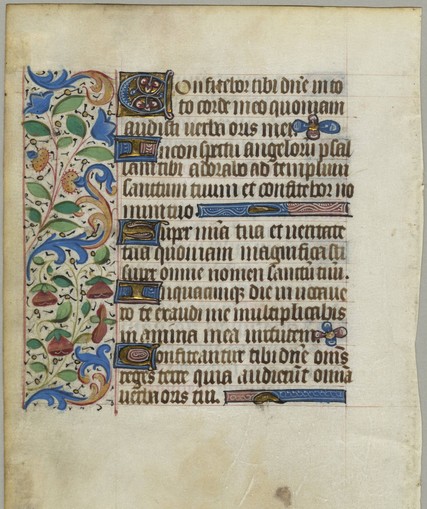 Confitebor tibi dñe in to
to corde meo quoniam
audisti verba oris mei
In conspectu angeloru psal
lam tibi adorabo ad templum
sanctum tuum et confitebor no
mini tuo
Super mia tua et veritate
tua quoniam magnificasti
super omne nomen sanctu tuu.
In quacumqz die invocave
ro te exaudi me multiplicabis
in anima mea virtutem
Confiteantur tibi dñe oms
reges terre quia audierut omia
verba oris tui.